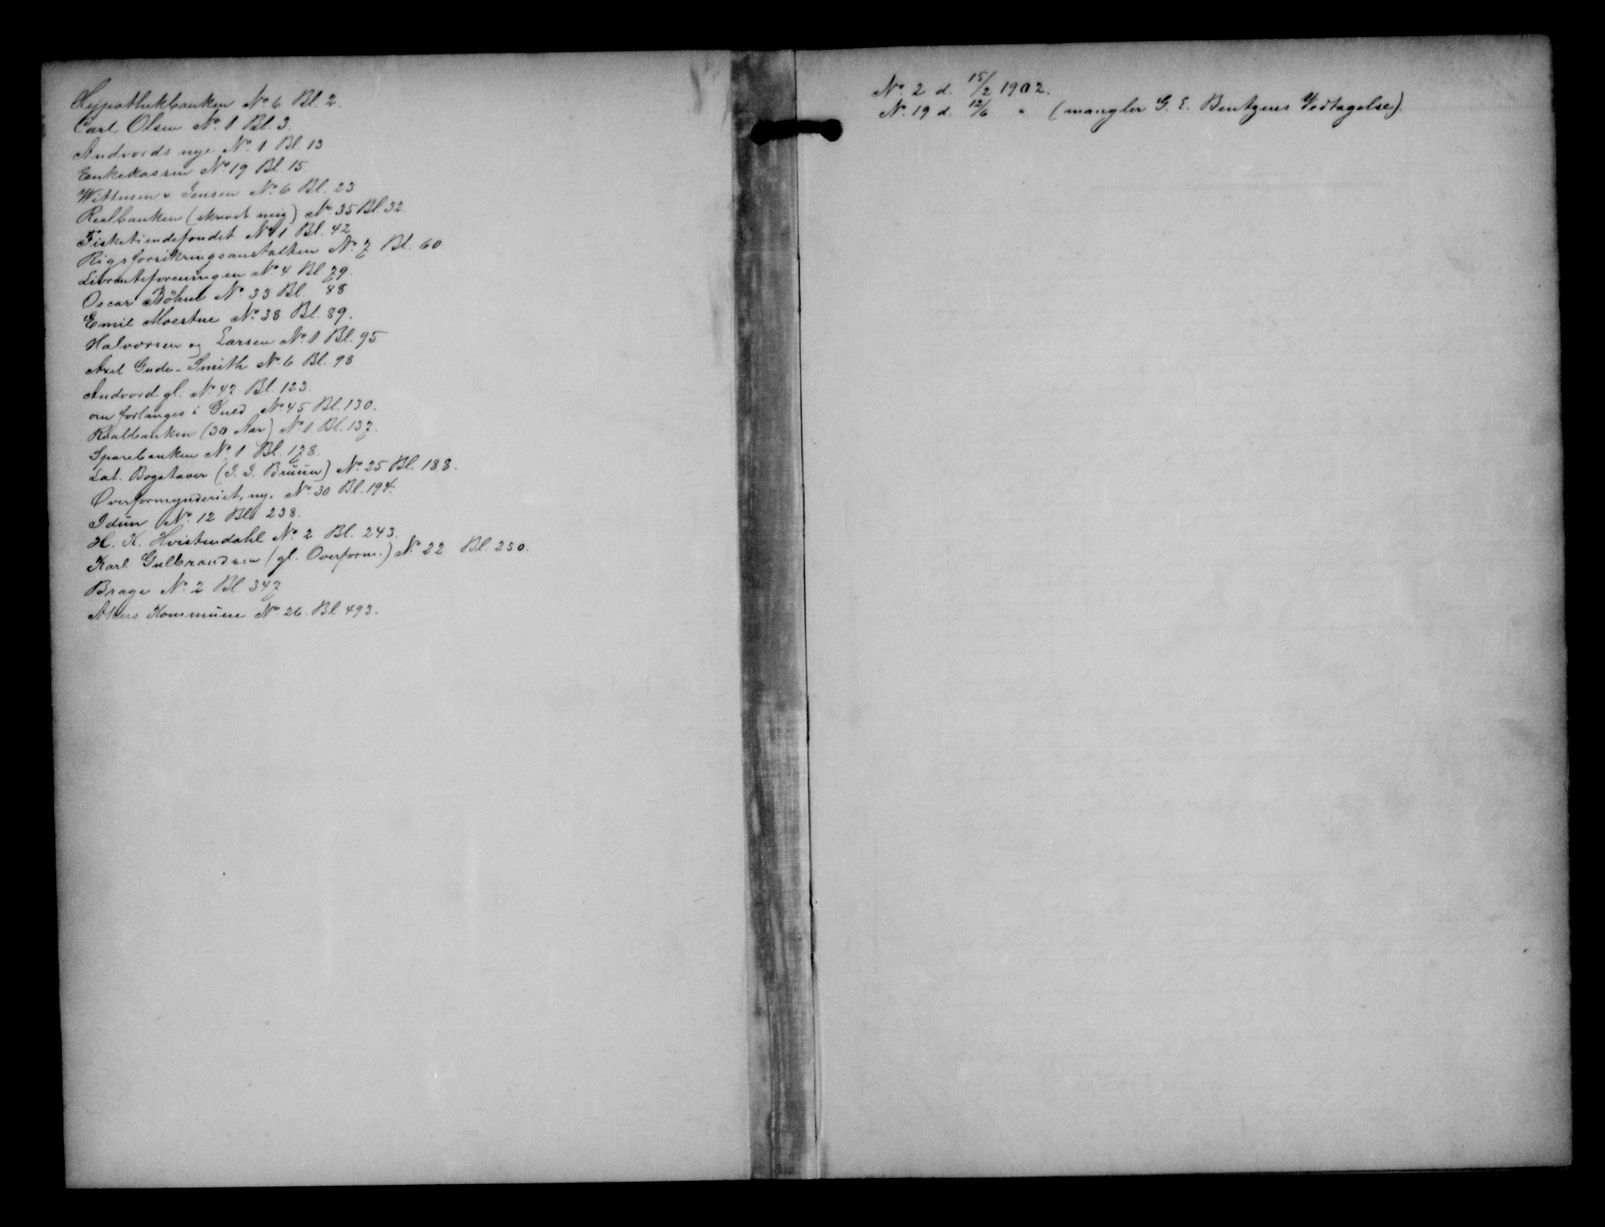 Hypothekbanken No 6 Bl. 2.
Carl Olsen No. 1 Bl. 3.
Andvords nye No. 1 Bl. 13
Enkekassen No 19 Bl. 15.
Wittusen & Jensen No. 6 Bl. 23
Realbanken (skrevet mig) No 35 Bl. 32.
Fisketiendefondet No 1 Bl. 42
Rigsforsikringsanstalten No. 7 Bl. 60
Livrenteforeningen No 4 Bl. 79.
Oscar Bøhne No. 33 Bl. 88
Emil Moestue No. 38 Bl. 89.
Halvorsen og Larsen No. 1 Bl. 95
Axel Gude-Smith No 6 Bl. 98
Andvord gl. No. 47 Bl. 123.
om forlanges i Guld No 45 Bl. 130.
Realbanken (30 Aar) No. 1 Bl. 137.
Sparebanken No. 1 Bl. 178.
Lat. Bogstaver (J. J. Bruun) No. 25 Bl. 188.
Overformynderiet, ny, No. 30 Bl. 194.
Idun No. 12 Bl. 238.
H. K. Hvistendahl No. 2 Bl. 243.
Karl Gulbrandsen (gl. Overform.) No. 22 Bl. 250.
Brage No. 2 Bl. 347
Akers Kommune No. 26 Bl. 493.
No. 2 d. 15/2 1902.
No. 19 d. 12/6 " (mangler G. E. Bentzens Vedtagelse).